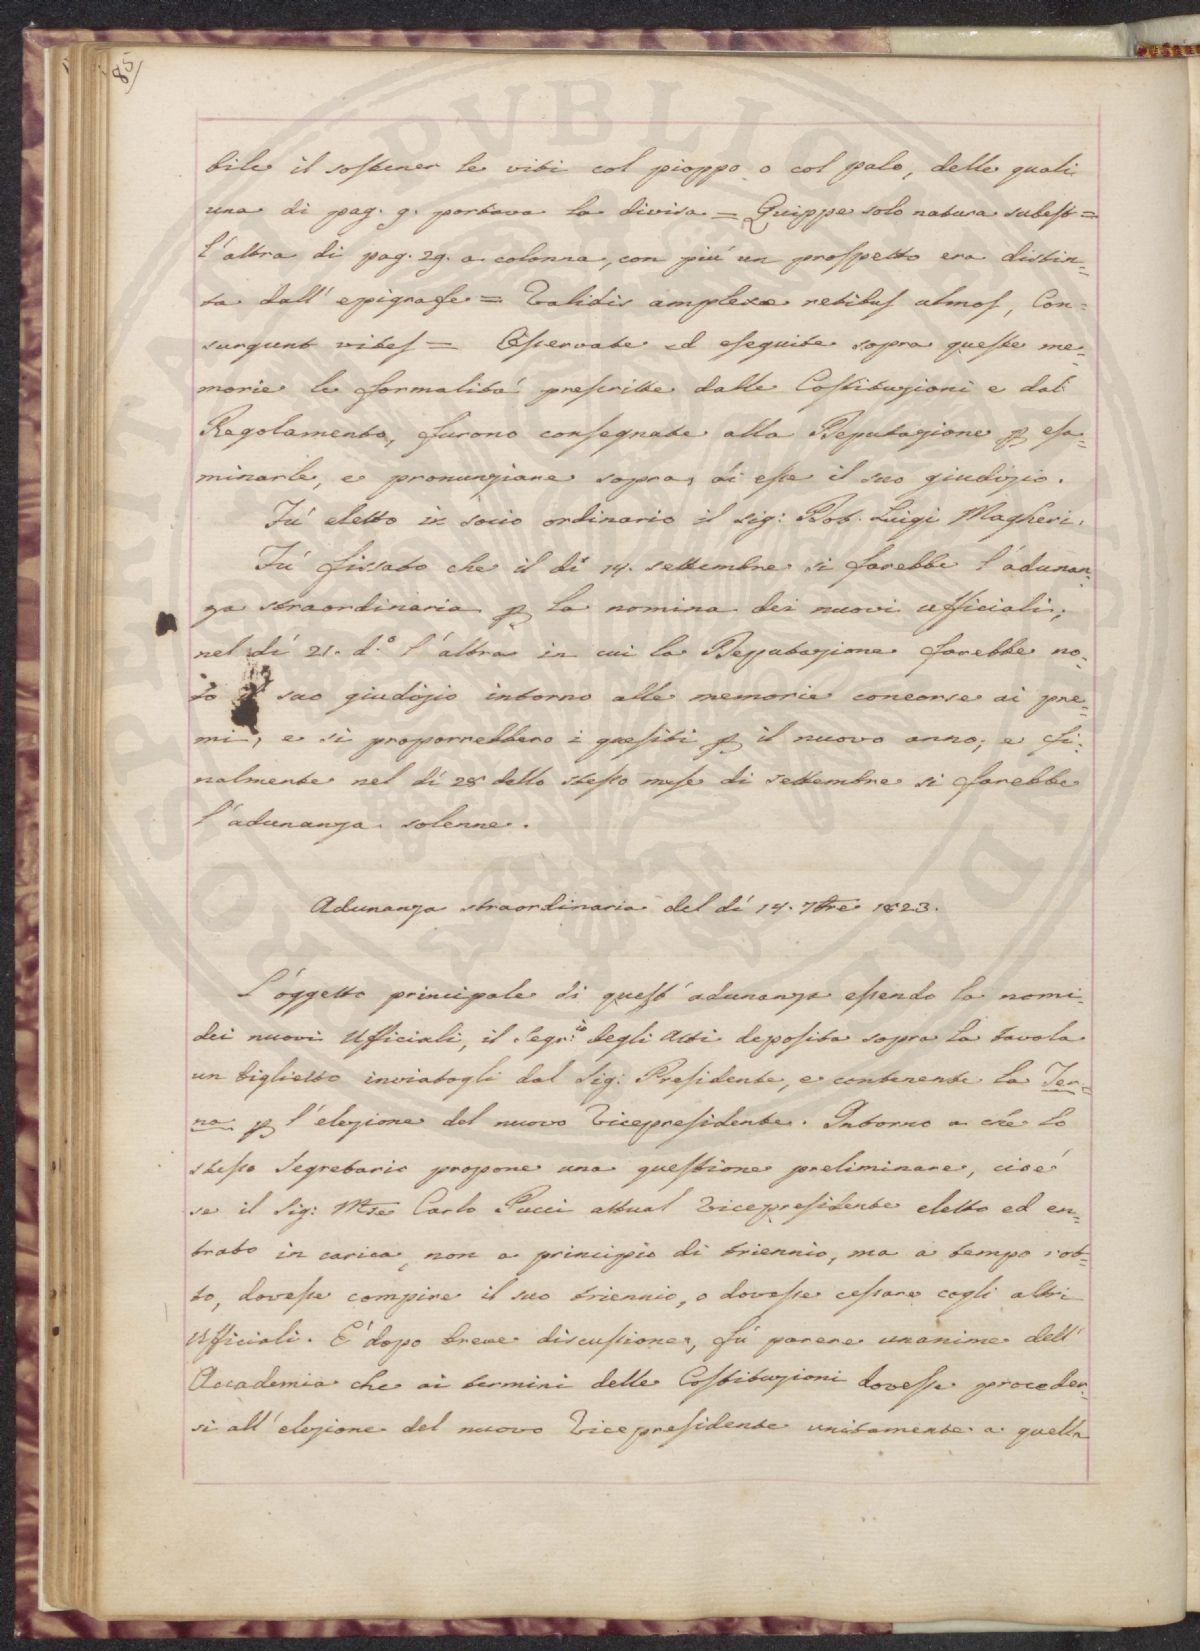 85/
bile il sostener le viti col pioppo o col palo, delle quali
una di pag. 9. portava la divisa = Quippe solo natura subest =
l'altra di pag. 29. a colonna, con piú un prospetto era distin=
ta dall'epigrafe = Validis amplexæ retibus ulmos, Con=
surgunt vites = Osservate ed eseguite sopra queste me=
morie le formalitá prescritte dalle Costituzioni e dal
Regolamento, furono consegnate alla Deputazione p esa=
minarle, e pronunziare sopra di esse il suo giudizio.
Fú eletto in socio ordinario il sig: Dot. Luigi Magheri.
Fú fissato che il dí 14. settembre si farebbe l'adunan=
za straordinaria p la nomina dei nuovi ufficiali;
nel dí 21. d.º l'altra in cui la Deputazione farebbe no=
to suo giudizio intorno alle memorie concorse ai pre=
mi, e si proporrebbero i quesiti p il nuovo anno; e fi=
nalmente nel dí 28 dello stesso mese di settembre si farebbe
l'adunanza solenne.
Adunanza straordinaria del dí 14. 7bre 1823.
L'oggetto principale di quest'adunanza essendo la nomi=
dei nuovi Ufficiali, il Segr:io degli Atti deposita sopra la tavola
un biglietto inviatogli dal Sig: Presidente, e contenente la Ter=
na p l'elezione del nuovo Vicepresidente. Intorno a che lo
stesso Segretario propone una questione preliminare, cioé
se il Sig: Mse Carlo Pucci attual Vicepresidente eletto ed en=
trato in carica, non a principio di triennio, ma a tempo rot=
to, dovesse compire il suo triennio, o dovesse cessare cogli altri
Ufficiali. E' dopo breve discussione, fú parere unanime dell'
Accademia che ai termini delle Costituzioni dovesse proceder=
si all'elezione del nuovo Vicepresidente unitamente a quella